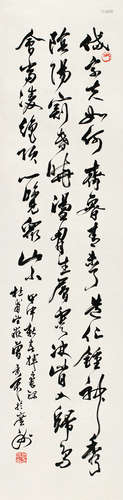 岱宗夫如何齊魯青未了造化鍾神秀
陰陽割昏曉盪胸生層雲決眥入歸鳥
會當凌絕頂一覽衆山小
甲申秋
杜甫望嶽曾景充於廣州